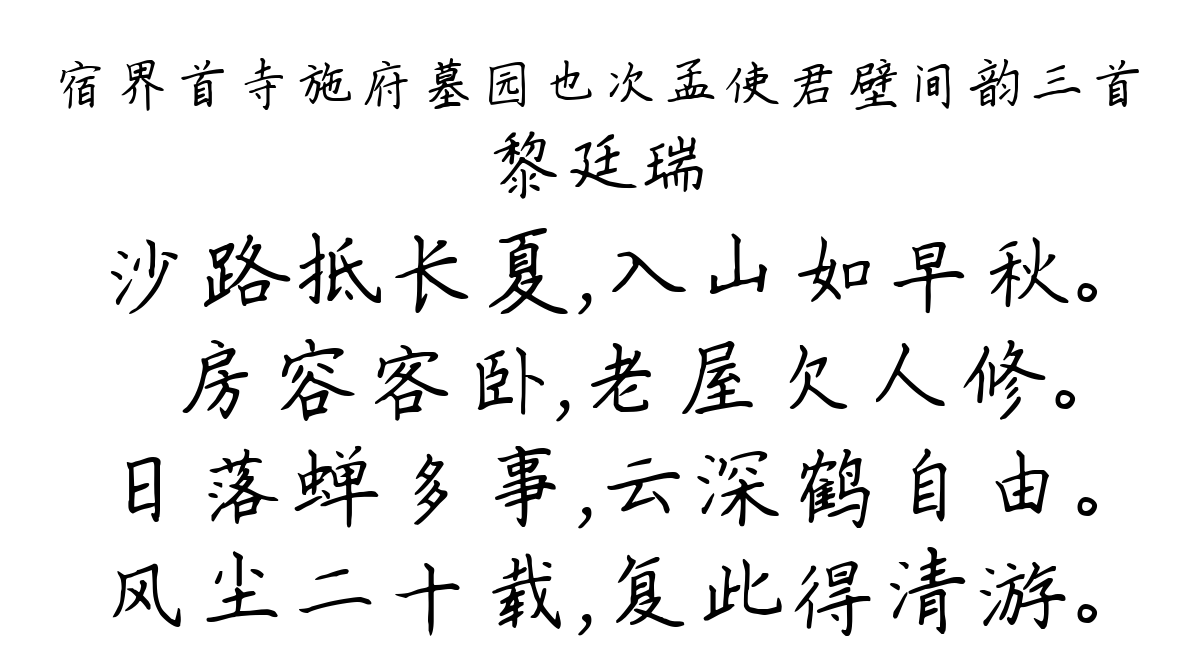 宿界首寺施府墓园也次孟使君壁间韵三首
黎廷瑞
沙路抵长夏,入山如早秋。
房容客卧,老屋欠人修。
日落蝉多事,云深鹤自由。
风尘二十载,复此得清游。